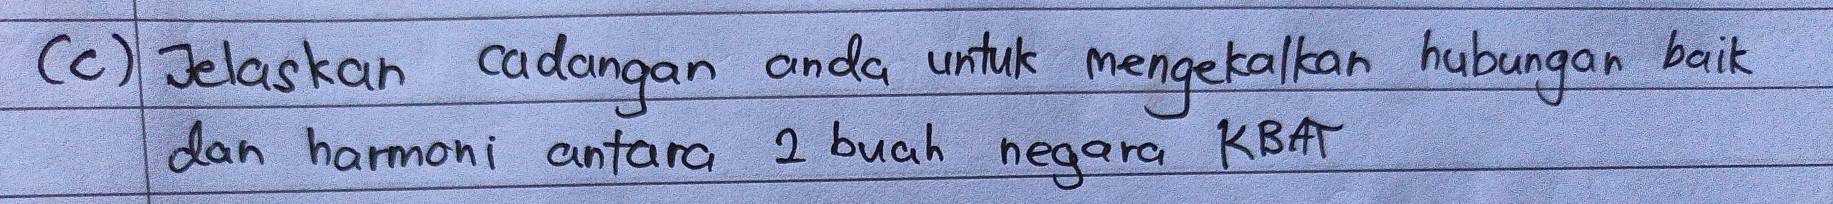 (c) Jelaskan cadangan anda untuk mengekalkan hubungan baik
dan harmoni antara 2 buah negara KBAT